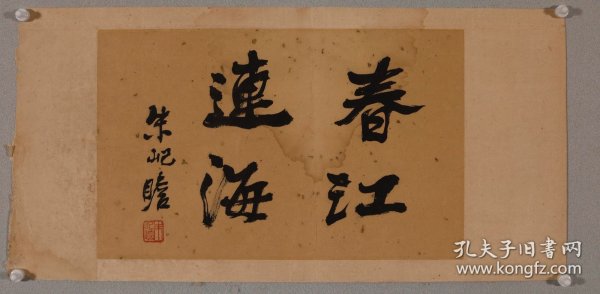 春江
連海
朱屺瞻
孔夫子旧书网
www.kongfz.com